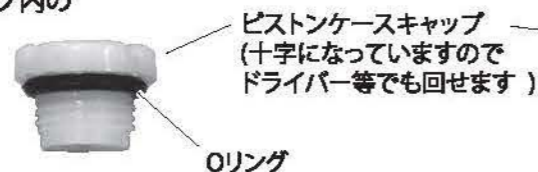 内の
ピストンケースキャップ
(十字になっていますので
ドライバー等でも回せます )
Oリング